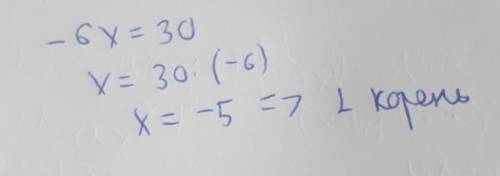 -6x = 30
x = 30: (-6)
x = -5 => 1 корень